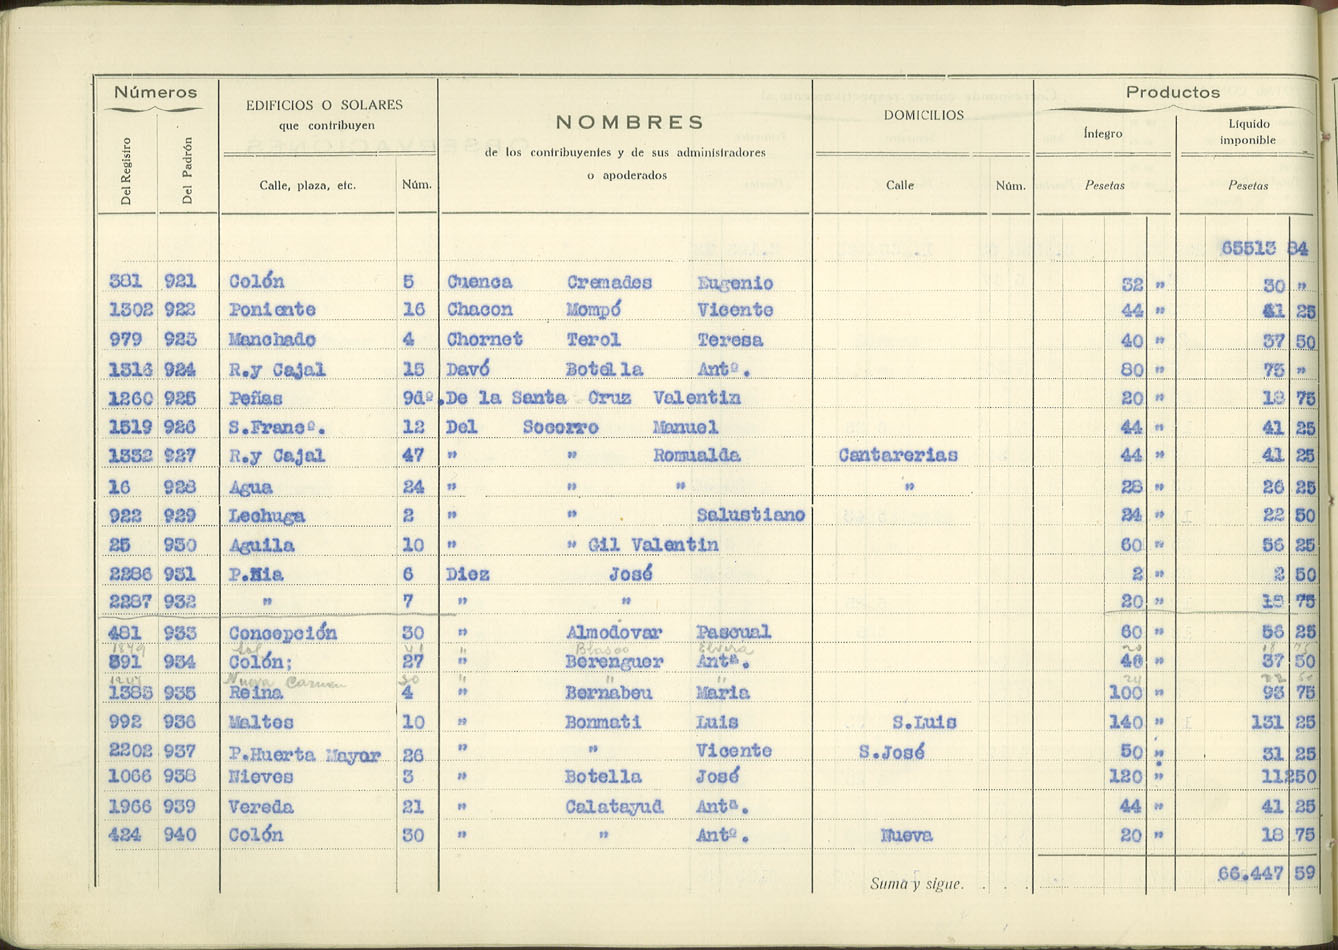 Números EDIFICIOS O SOLARES que contribuyen NOMBRES de los contribuyentes y de sus administradores o apoderados DOMICILIOS Productos
Del Registro Del Padrón Calle, plaza, etc. Núm. Calle Núm. Íntegro Pesetas Líquido imponible Pesetas
65513 84
381 921 Colón 5 Cuenca Cremades Eugenio 32 " 30 "
1302 922 Poniente 16 Chacon Mompó Vicente 44 " 41 25
979 923 Manchado 4 Chornet Terol Teresa 40 " 37 50
1316 924 R.y Cajal 15 Davó Botella Antº. 80 " 75 "
1260 925 Peñas 9dº. De la Santa Cruz Valentin 20 " 18 75
1519 926 S.Francº. 12 Del Socorro Manuel 44 " 41 25
1332 927 R.y Cajal 47 " " Romualda Cantarerias 44 " 41 25
16 928 Agua 24 " " " " 28 " 26 25
922 929 Lechuga 2 " " Salustiano 24 " 22 50
25 930 Aguila 10 " " Gil Valentin 60 " 56 25
2286 931 P.Nia 6 Diez José 2 " 2 50
2287 932 " 7 " " 20 " 18 75
481 933 Concepción 30 " Almodovar Pascual 60 " 56 25
1849 Sol VI " Blasco Elvira 20 18 75
391 934 Colón; 27 " Berenguer Antª. 40 " 37 50
Nueva Carmen 30 " " " 24 22 50
1385 935 Reina 4 " Bernabeu Maria 100 " 93 75
992 936 Maltes 10 " Bonmati Luis S.Luis 140 " 131 25
2202 937 P.Huerta Mayor 26 " " Vicente S.José 50 " 31 25
1066 938 Nieves 3 " Botella José 120 " 112 50
1966 939 Vereda 21 " Calatayud Antª. 44 " 41 25
424 940 Colón 30 " " Antº. Nueva 20 " 18 75
Suma y sigue. . . . 66.447 59